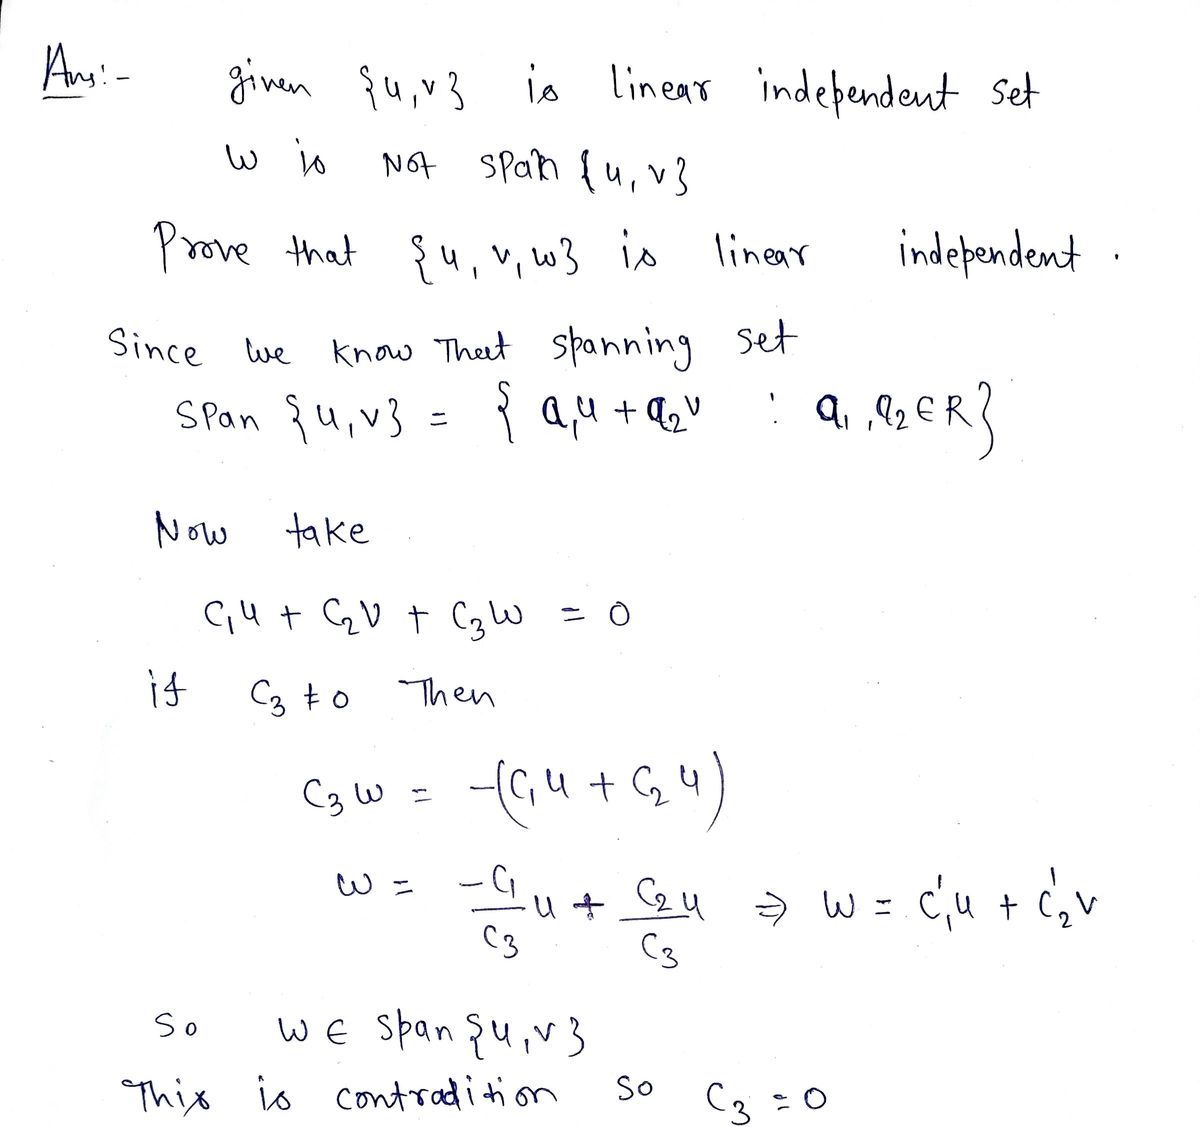 Ans:- given {u,v} is linear independent set
w is Not span {u,v}
Prove that {u, v, w} is linear independent.
Since we know That spanning set
Span {u,v} = { a₁u + a₂v : a₁, a₂ ∈ R}
Now take
C₁u + C₂v + C₃w = 0
if C₃ ≠ 0 Then
C₃w = -(C₁u + C₂u)
w = -C₁/C₃ u + C₂u/C₃ ⇒ w = C₁'u + C₂'v
So w ∈ span {u,v}
This is contradition so C₃ = 0